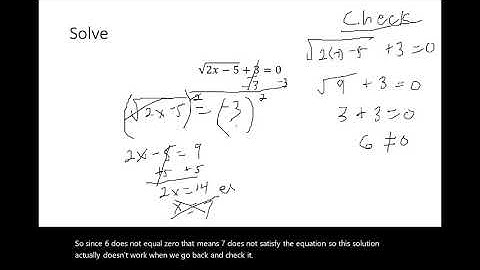 Solve
√2x − 5 + 3 = 0
−3 −3
(√2x-5)² = (-3)²
2x - 5 = 9
+5 +5
2x = 14
x = 7
Check
√2(7)-5 + 3 = 0
√9 + 3 = 0
3 + 3 = 0
6 ≠ 0
So since 6 does not equal zero that means 7 does not satisfy the equation so this solution
actually doesn't work when we go back and check it.